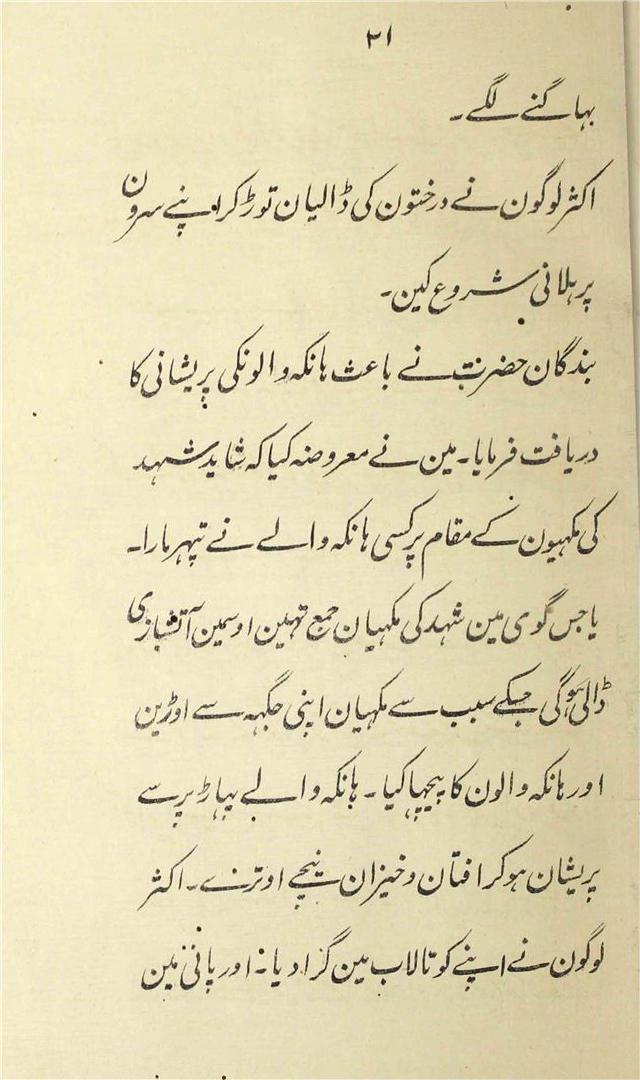 ۲۱
بہاگنے لگے۔
اکثر لوگون نے درختون کی ڈالیان توڑکر اپنے سرون
پر ہلانی شروع کین۔
بندگان حضرت نے باعث ہانکہ والونکی پریشانی کا
دریافت فرمایا۔ مین نے معروضہ کیا کہ شاید شہد
کی مکہیون کے مقام پر کسی ہانکہ والے نے پتہر مارا۔
یا جس گوی مین شہد کی مکہیان جمع تہین اوسمین آتشبازی
ڈالی ہوگی جسکے سبب سے مکہیان اپنی جگہہ سے اوڑین
اور ہانکہ والون کا پیچہا کیا۔ ہانکہ والے پہاڑ پر سے
پریشان ہوکر افتان وخیزان نیچے اوترے۔ اکثر
لوگون نے اپنے کو تالاب مین گرا دیا۔ اور پانی مین